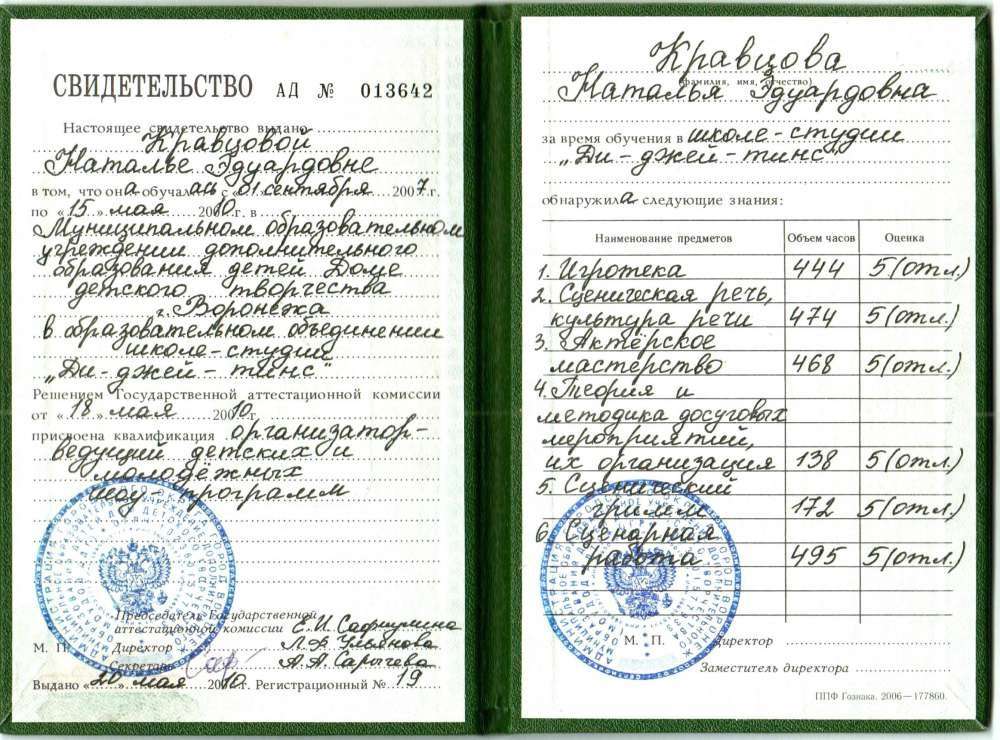 СВИДЕТЕЛЬСТВО АД № 013642
Настоящее свидетельство выдано
Кравцовой
Наталье Эдуардовне
в том, что она обучалась с «01 сентября 2007 г.
по «15» мая 2010 г. в
Муниципальном образовательном
учреждении дополнительного
образования детей Доме
детского творчества
г. Воронежа
в образовательном объединении
школе-студии
„Ди-джей-тинс"
Решением Государственной аттестационной комиссии
от «18» мая 2010 г.
присвоена квалификация организатор-
ведущий детских и
молодёжных
шоу-программ
Председатель Государственной
аттестационной комиссии Е.И.
М. П. Директор Л.Ф. Ульянова
Секретарь А.А. Сарычева
Выдано «20 мая 2010 г. Регистрационный № 19
Кравцова
(фамилия, имя, отчество)
Наталья Эдуардовна
за время обучения в школе-студии
„Ди-джей-тинс"
обнаружила следующие знания:
Наименование предметов Объем часов Оценка
1. Игротека 444 5(отл.)
2. Сценическая речь,
культура речи 474 5(отл.)
3. Актёрское
мастерство 468 5(отл.)
4. Теория и
методика досуговых
мероприятий,
их организация 138 5(отл.)
5. Сценический
гримм 172 5(отл.)
6. Сценарная
работа 495 5(отл.)
М. П. Директор
Заместитель директора
ППФ Гознака. 2006—177860.